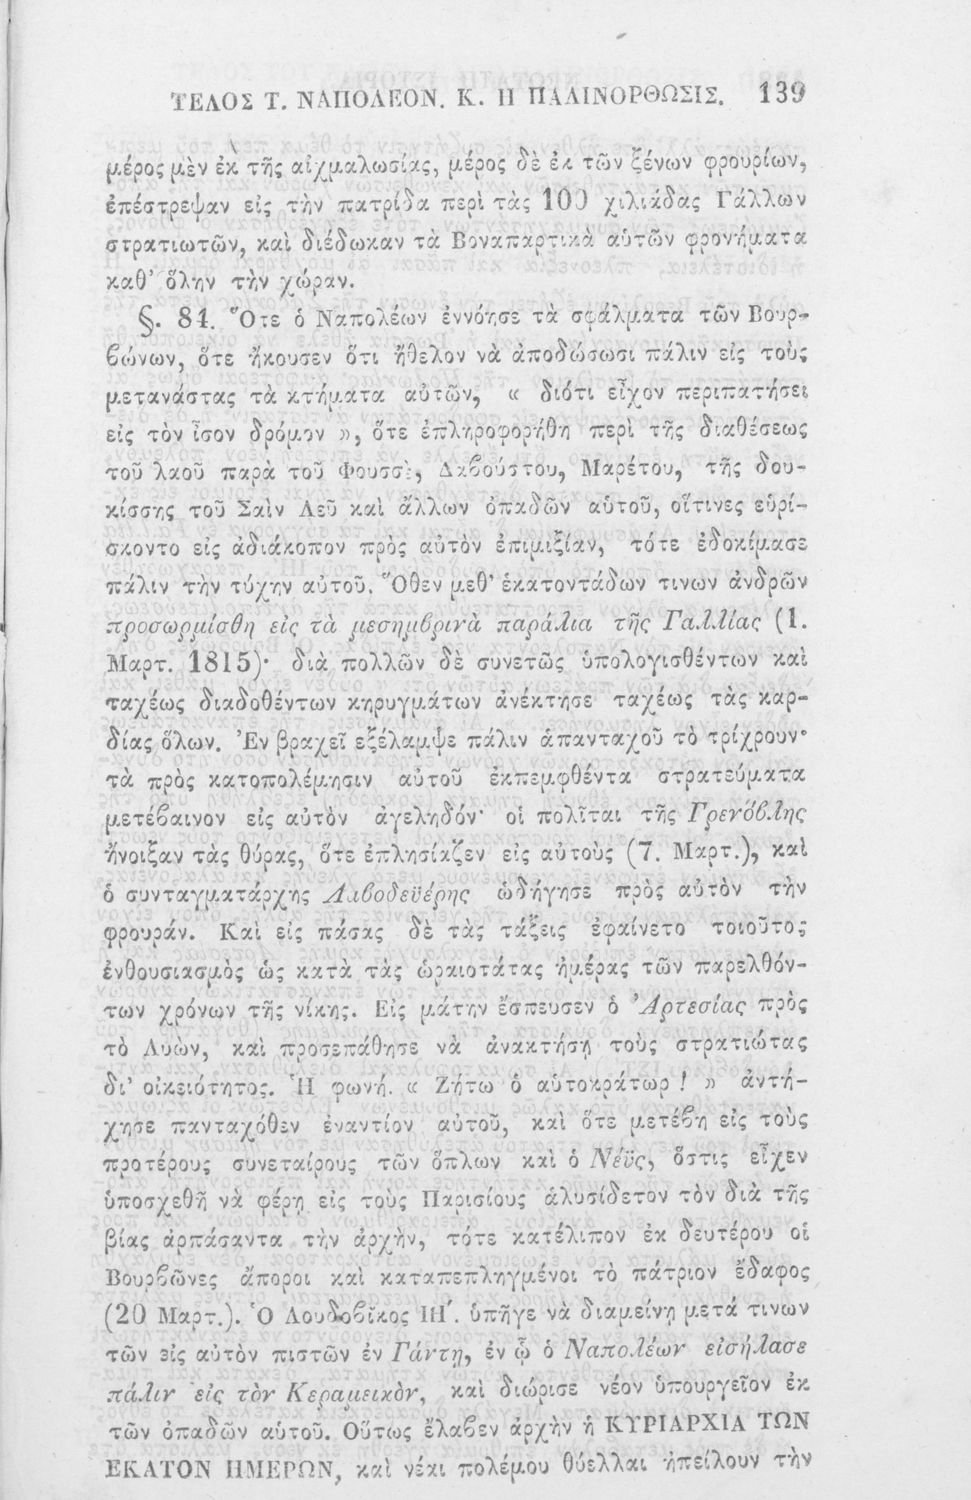 ΤΕΛΟΣ Τ. ΝΑΠΟΛΕΟΝ. Κ. Η ΠΑΛΙΝΟΡΘΩΣΙΣ. 139
μέρος μὲν ἐκ τῆς αἰχμαλωσίας, μέρος δὲ ἐκ τῶν ξένων φρουρίων,
ἐπέστρεψαν εἰς τὴν πατρίδα περὶ τὰς 100 χιλιάδας Γάλλων
στρατιωτῶν, καὶ διέδωκαν τὰ Βοναπαρτικὰ αὑτῶν φρονήματα
καθ’ ὅλην τὴν χώραν.
§. 84. Ὅτε ὁ Ναπολέων ἐννόησε τὰ σφάλματα τῶν Βουρ-
βώνων, ὅτε ἤκουσεν ὅτι ἤθελον νὰ ἀποδώσωσι πάλιν εἰς τοὺς
μετανάστας τὰ κτήματα αὑτῶν, « διότι εἶχον περιπατήσει
εἰς τὸν ἶσον δρόμον », ὅτε ἐπληροφορήθη περὶ τῆς διαθέσεως
τοῦ λαοῦ παρὰ τοῦ Φουσσὲ, Δαβούστου, Μαρέτου, τῆς δου-
κίσσης τοῦ Σαὶν Λεῦ καὶ ἄλλων ὀπαδῶν αὑτοῦ, οἵτινες εὑρί-
σκοντο εἰς ἀδιάκοπον πρὸς αὐτὸν ἐπιμιξίαν, τότε ἐδοκίμασε
πάλιν τὴν τύχην αὑτοῦ. Ὅθεν μεθ’ ἑκατοντάδων τινων ἀνδρῶν
προσωρμίσθη εἰς τὰ μεσημβρινὰ παράλια τῆς Γαλλίας (1.
Μαρτ. 1815)· διὰ πολλῶν δὲ συνετῶς ὑπολογισθέντων καὶ
ταχέως διαδοθέντων κηρυγμάτων ἀνέκτησε ταχέως τὰς καρ-
δίας ὅλων. Ἐν βραχεῖ ἐξέλαμψε πάλιν ἁπανταχοῦ τὸ τρίχρουν·
τὰ πρὸς κατοπολέμησιν αὐτοῦ ἐκπεμφθέντα στρατεύματα
μετέβαινον εἰς αὐτὸν ἀγεληδόν· οἱ πολῖται τῆς Γρενόβλης
ἤνοιξαν τὰς θύρας, ὅτε ἐπλησίαζεν εἰς αὐτοὺς (7. Μαρτ.), καὶ
ὁ συνταγματάρχης Λαβοδεϋέρης ὡδήγησε πρὸς αὐτὸν τὴν
φρουράν. Καὶ εἰς πάσας δὲ τὰς τάξεις ἐφαίνετο τοιοῦτος
ἐνθουσιασμὸς ὡς κατὰ τὰς ὡραιοτάτας ἡμέρας τῶν παρελθόν-
των χρόνων τῆς νίκης. Εἰς μάτην ἔσπευσεν ὁ Ἀρτεσίας πρὸς
τὸ Λυὼν, καὶ προσεπάθησε νὰ ἀνακτήσῃ τοὺς στρατιώτας
δι’ οἰκειότητος. Ἡ φωνή. « Ζήτω ὁ αὐτοκράτωρ ! » ἀντή-
χησε πανταχόθεν ἐναντίον αὐτοῦ, καὶ ὅτε μετέβη εἰς τοὺς
προτέρους συνεταίρους τῶν ὅπλων καὶ ὁ Νέϋς, ὅστις εἶχεν
ὑποσχεθῆ νὰ φέρῃ εἰς τοὺς Παρισίους ἁλυσίδετον τὸν διὰ τῆς
βίας ἁρπάσαντα τὴν ἀρχὴν, τότε κατέλιπον ἐκ δευτέρου οἱ
Βουρβῶνες ἄποροι καὶ καταπεπληγμένοι τὸ πάτριον ἔδαφος
(20 Μαρτ.). Ὁ Λουδοβῖκος ΙΗ΄. ὑπῆγε νὰ διαμείνῃ μετά τινων
τῶν εἰς αὐτὸν πιστῶν ἐν Γάντῃ, ἐν ᾧ ὁ Ναπολέων εἰσήλασε
πάλιν εἰς τὸν Κεραμεικὸν, καὶ διώρισε νέον ὑπουργεῖον ἐκ
τῶν ὀπαδῶν αὑτοῦ. Οὕτως ἔλαβεν ἀρχὴν ἡ ΚΥΡΙΑΡΧΙΑ ΤΩΝ
ΕΚΑΤΟΝ ΗΜΕΡΩΝ, καὶ νέαι πολέμου θύελλαι ἠπείλουν τὴν